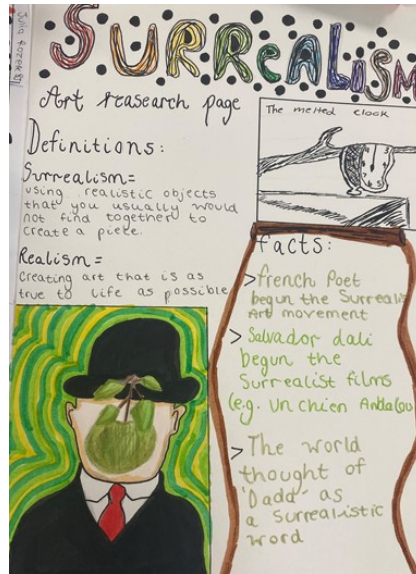 SURREALISM
Art reasearch page
The melted clock
Definitions:
Surrealism=
using realistic objects
that you usually would
not find together to
create a piece.
Realism=
Creating art that is as
true to life as possible
facts:
> French Poet
begun the Surrealis
Art movement
> Salvador dali
begun the
Surrealist films
(e.g. Un Chien Andalou
> The world
thought of
'Dada' as
a Surrealistic
word